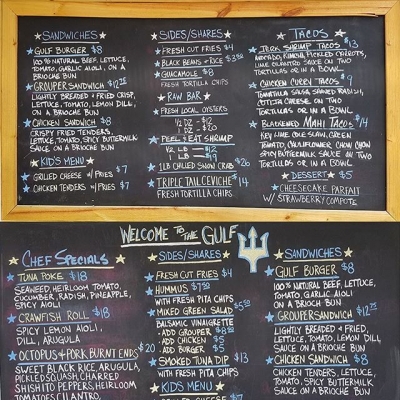 SANDWICHES
GULF BURGER $8
100% NATURAL BEEF, LETTUCE,
TOMATO, GARLIC AIOLI, ON A
BRIOCHE BUN
GROUPER SANDWICH $12.25
LIGHTLY BREADED & FRIED CRISP,
LETTUCE, TOMATO, LEMON DILL,
ON A BRIOCHE BUN
CHICKEN SANDWICH $8
CRISPY FRIED TENDERS,
LETTUCE, TOMATO, SPICY BUTTERMILK
SAUCE ON A BRIOCHE BUN
KID'S MENU
GRILLED CHEESE W/FRIES $7
CHICKEN TENDERS W/FRIES $7
SIDES/SHARES
FRESH CUT FRIES $4
BLACK BEANS & RICE $3.50
GUACAMOLE $8
FRESH TORTILLA CHIPS
RAW BAR
FRESH LOCAL OYSTERS
1/2 DZ - $12
DZ - $20
PEEL & EAT SHRIMP
1/2 LB $12
1 LB $19
1LB CHILLED SNOW CRAB $26
TRIPLE TAIL CEVICHE $14
FRESH TORTILLA CHIPS
TACOS
JERK SHRIMP TACOS $13
AVOCADO, KIMCHI, PICKLED CARROTS,
LIME CILANTRO SAUCE ON TWO
TORTILLAS OR IN A BOWL
CHICKEN CUREN TACOS $9
TOMATILLA SALSA, SHAVED RADISH,
COTIJA CHEESE, ON TWO
TORTILLAS OR IN A BOWL
BLACKENED MAHI TACOS $14
KEY LIME COLE SLAW, GREEN
TOMATO, CAULIFLOWER CHOW CHOW
SPICY BUTTERMILK SAUCE ON TWO
TORTILLAS OR IN A BOWL
DESSERT $5
CHEESECAKE PARFAIT
W/ STRAWBERRY COMPOTE
WELCOME TO THE GULF
CHEF SPECIALS
TUNA POKE $18
SEAWEED, HEIRLOOM TOMATO,
CUCUMBER, RADISH, PINEAPPLE,
SPICY AIOLI
CRAWFISH ROLL $18
SPICY LEMON AIOLI,
DILL, ARUGULA
OCTOPUS & PORK BURNT ENDS $20
SWEET BLACK RICE, ARUGULA,
PICKLED SQUASH, CHARRED
SHISHITO PEPPERS, HEIRLOOM
TOMATOES, CILANTRO,
SIDES/SHARES
FRESH CUT FRIES $4
HUMMUS $7.50
WITH FRESH PITA CHIPS
MIXED GREEN SALAD $5.50
BALSAMIC VINAIGRETTE
- ADD GROUPER $8
- ADD CHICKEN $5
- ADD BURGER $5
SMOKED TUNA DIP $13
WITH FRESH PITA CHIPS
KIDS MENU
GRILLED CHEESE $7
SANDWICHES
GULF BURGER $8
100% NATURAL BEEF, LETTUCE,
TOMATO, GARLIC AIOLI
ON A BRIOCH BUN
GROUPER SANDWICH $12.25
LIGHTLY BREADED & FRIED,
LETTUCE, TOMATO, LEMON DILL
SAUCE ON A BRIOCHE BUN
CHICKEN SANDWICH $8
CHICKEN TENDERS, LETTUCE,
TOMATO, SPICY BUTTERMILK
SAUCE ON A BRIOCHE BUN